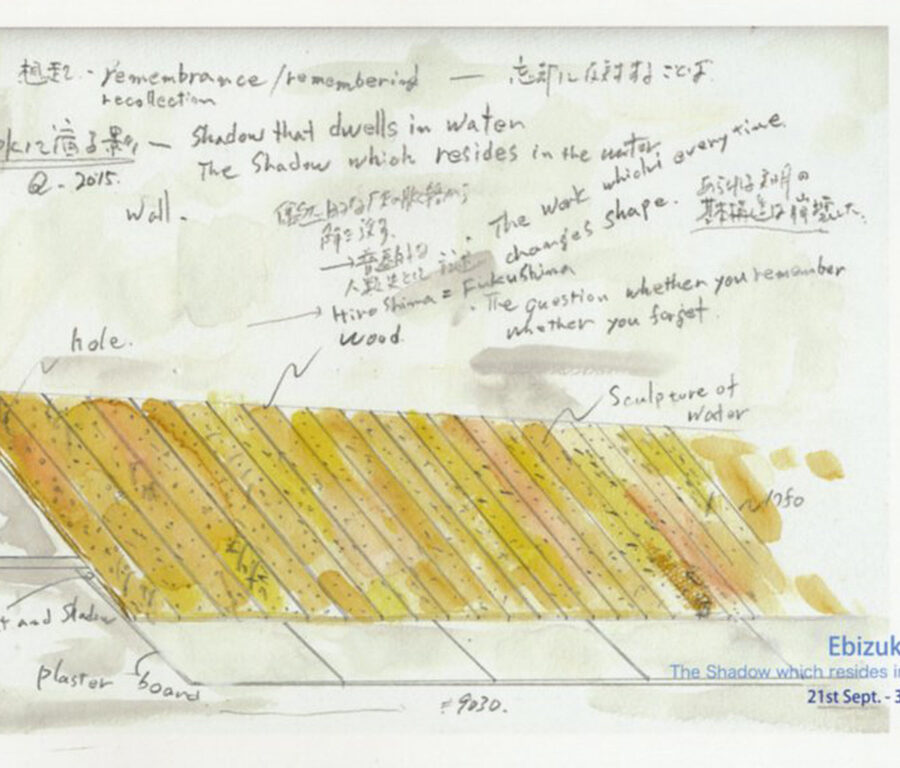 想起. - remembrance / remembering — 忘却に反対することば
recollection
水に宿る影 — Shadow that dwells in water
The Shadow which resides in the water
Q - 2015.
Wall.
偶然的な
→普遍的な
人類史として 記述
→ Hiroshima = Fukushima
・The work which every time
changes shape.
あらゆる文明の
基本構造は崩壊した.
・The question whether you remember
whether you forget.
hole.
wood.
Sculpture of
water
and Shadow
plaster board
≠9030.
Ebizuk
The Shadow which resides i
21st Sept. - 3